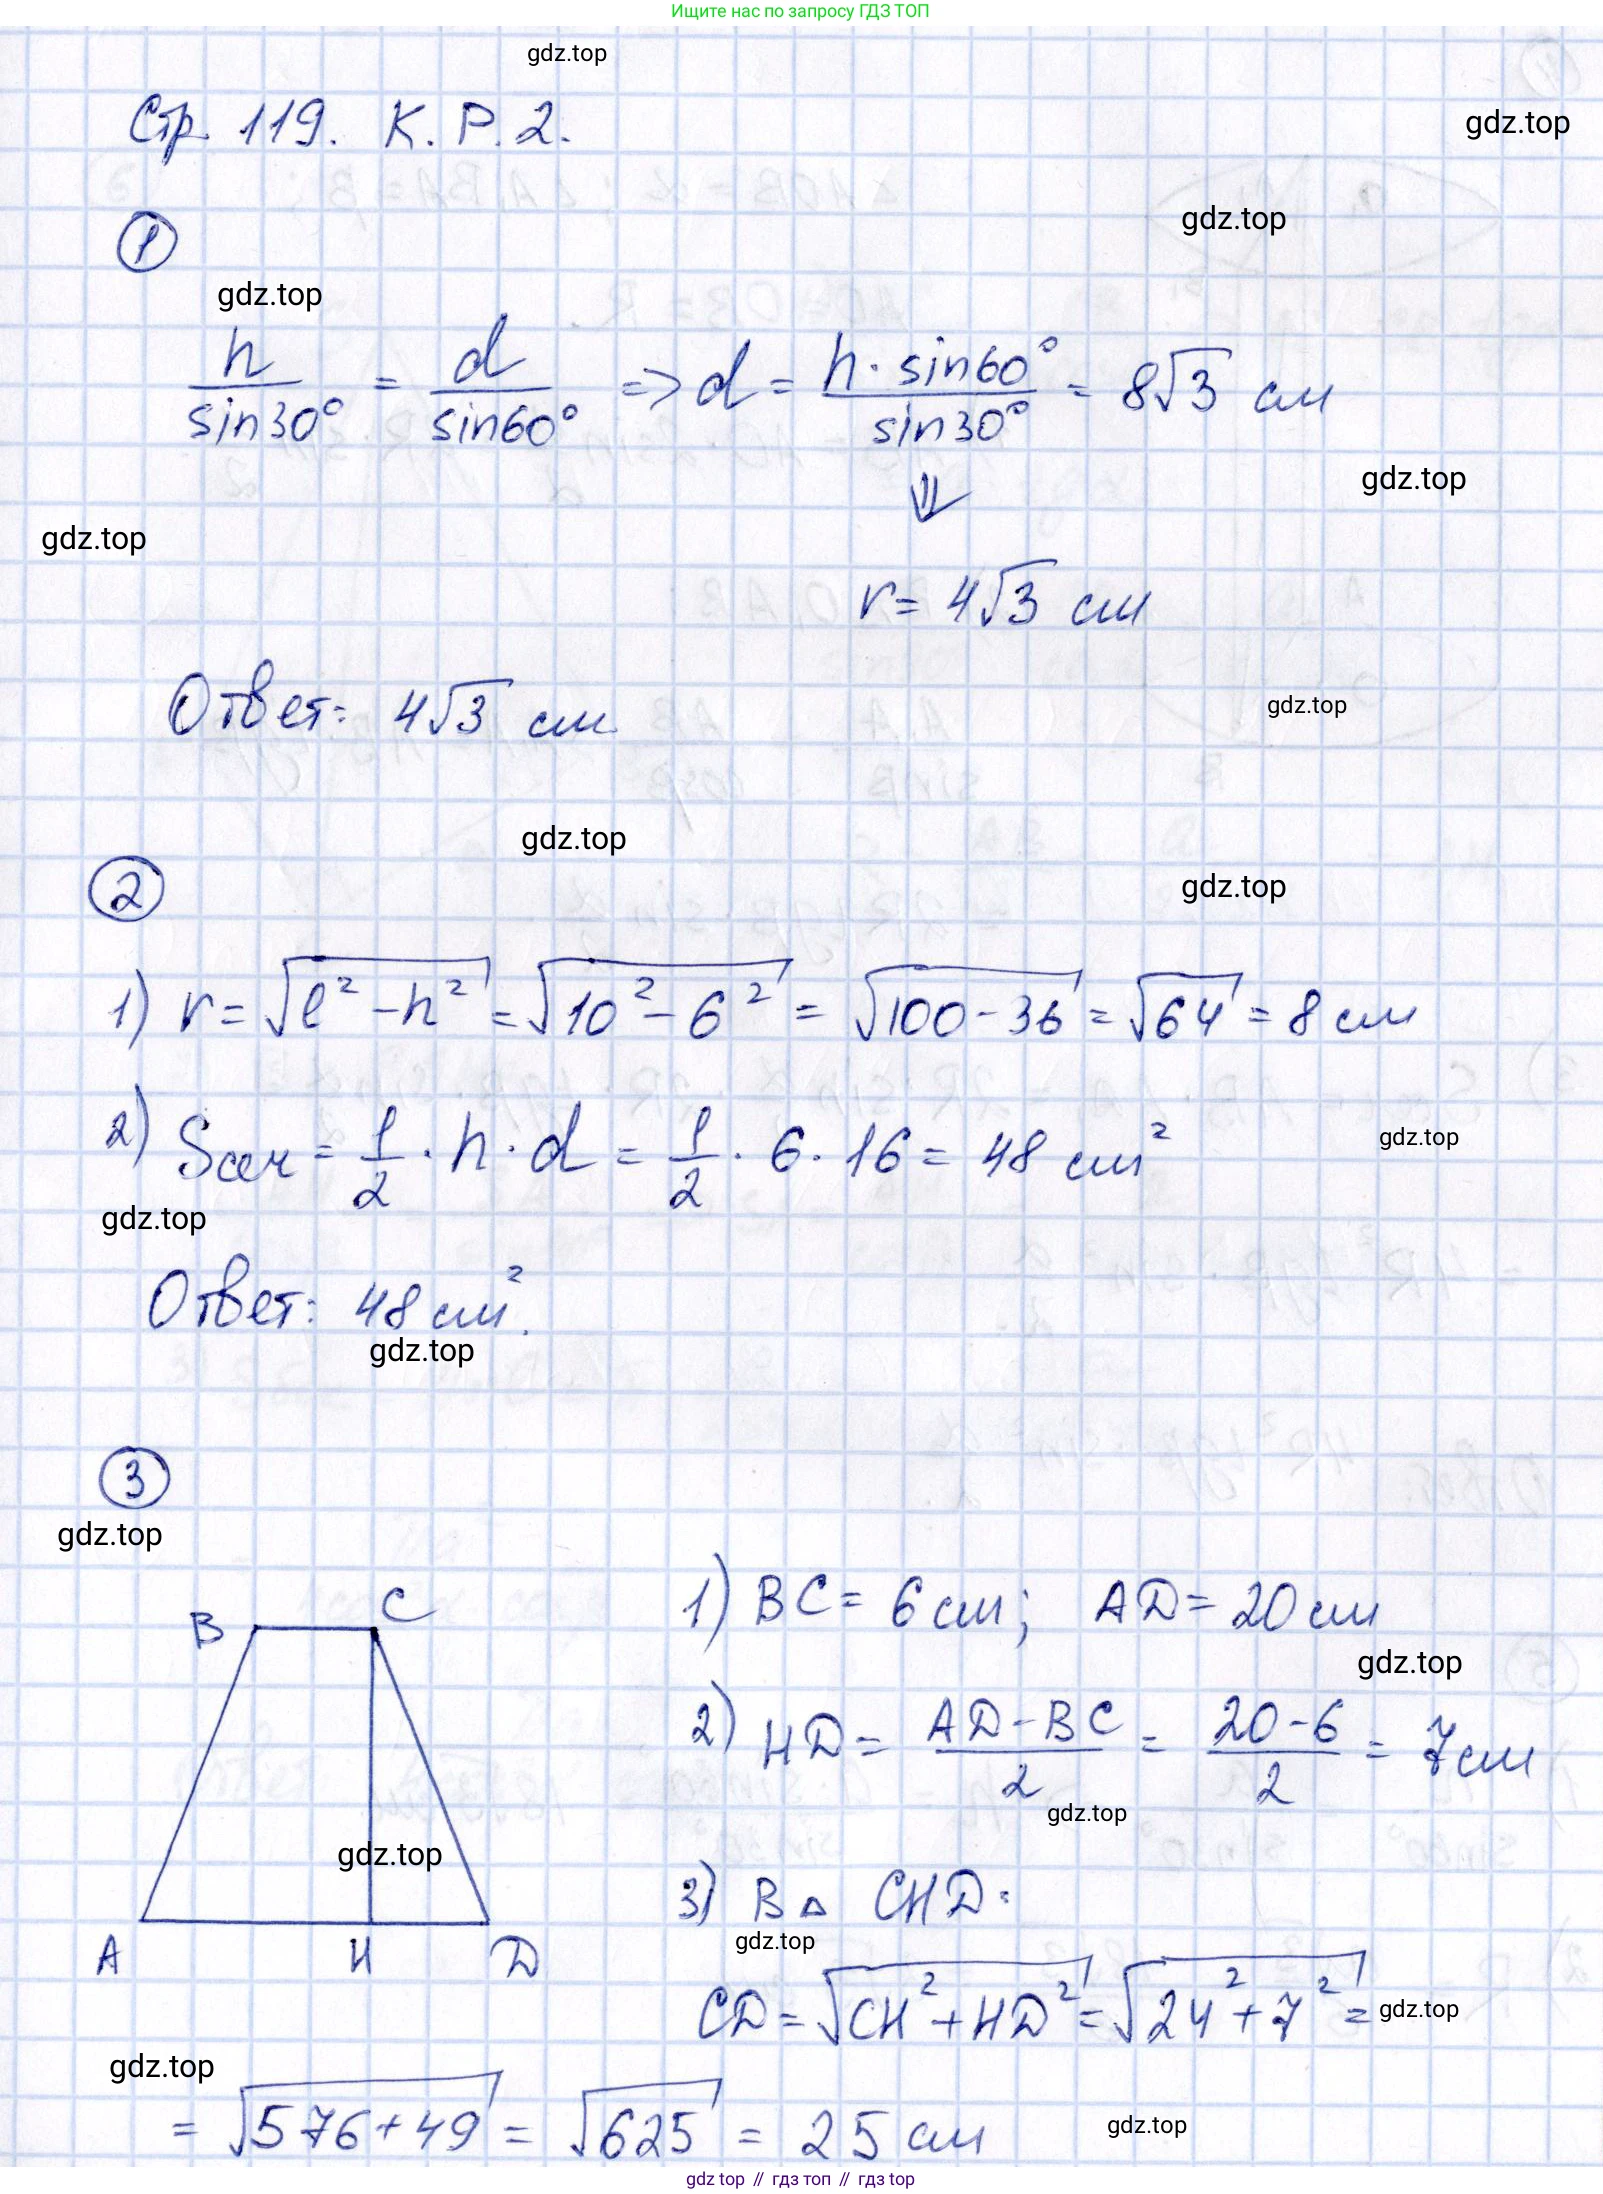 Ищите нас по запросу ГДЗ ТОП
gdz.top
Стр. 119. К. Р. 2.
gdz.top
gdz.top
1
gdz.top
h/sin30° = d/sin60° => d = h · sin60°/sin30° = 8√3 см
gdz.top
⇓
gdz.top
r = 4√3 см
Ответ: 4√3 см.
gdz.top
gdz.top
2
gdz.top
1) r = √(l² - h²) = √(10² - 6²) = √(100 - 36) = √64 = 8 см
2) Sсеч = 1/2 · h · d = 1/2 · 6 · 16 = 48 см²
gdz.top
gdz.top
Ответ: 48 см².
gdz.top
3
gdz.top
B C
1) BC = 6 см; AD = 20 см
gdz.top
2) HD = (AD - BC)/2 = (20 - 6)/2 = 7 см
gdz.top
gdz.top
3) В △ CHD:
gdz.top
A H D
CD = √(CH² + HD²) = √(24² + 7²) =
gdz.top
gdz.top
= √(576 + 49) = √625 = 25 см
gdz.top
gdz top // гдз топ // gdz top